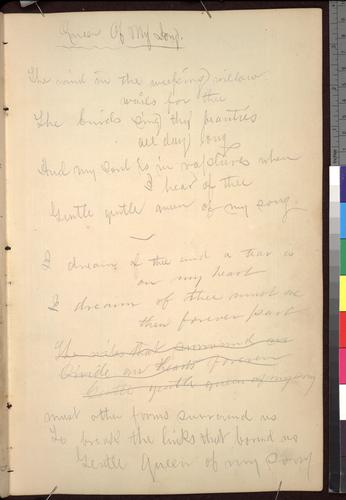 Queen Of My Song.
The wind in the weeping willow
wails for thee
The birds sing thy praises
all day long
And my soul is in raptures when
I hear of thee
Gentle gentle queen of my song.
I dream of thee and a tear is
on my heart
I dream of thee must we
then forever part
The miles that surround us
Divide our hearts forever
Gentle gentle queen of my song
must other forms surround us
To break the links that bound us
Gentle Queen of my Song